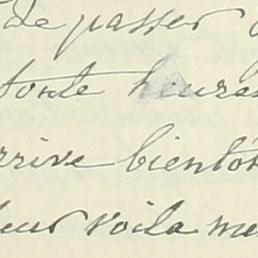 de passer
toute heures
rrive bientôt
leur voila me